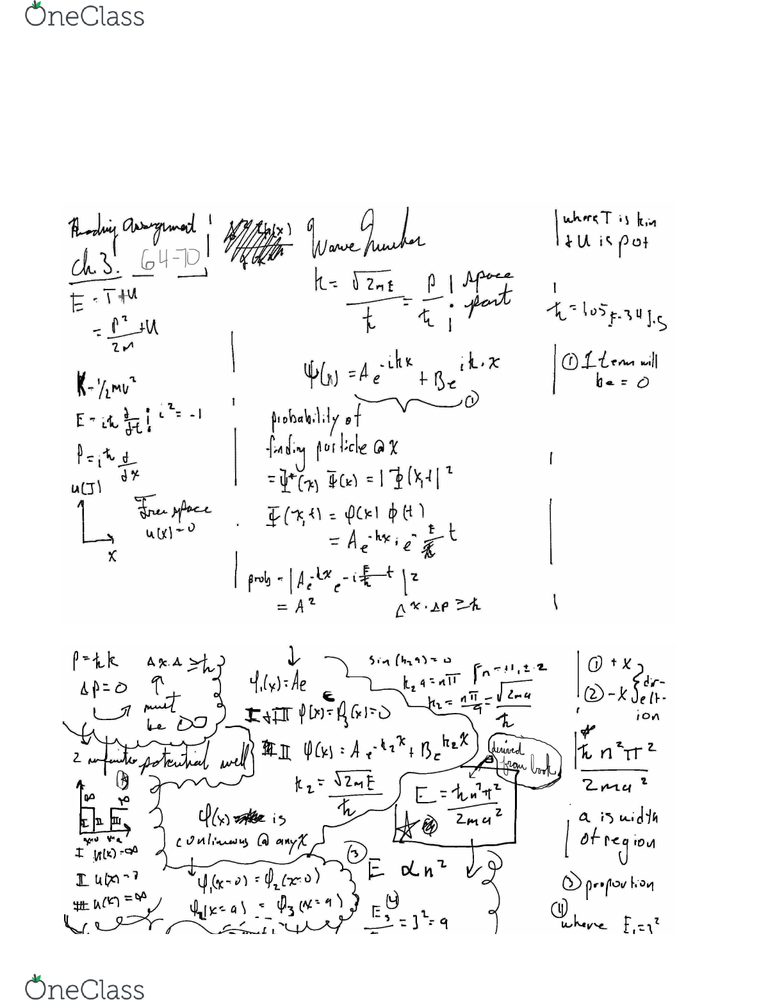 OneClass
Reading Assignment
Ch. 3. 64-70
E = T+U
= P²/2m + U
K = 1/2 mv²
E = iħ d/dt ! i² = -1
P = iħ d/dx
u(J)
x
Free space
u(x) = 0
Wave Number
k = √2mE/ħ = P/ħ
space part
ψ(x) = Ae^-ikx + Be^ik·x
①
probability of
finding particle @ x
= Ψ*(x) Ψ(x) = |Φ(x,t)|²
Ψ(x,t) = φ(x) φ(t)
= Ae^-kx i e^- E/ħ t
prob = |Ae^-kx e^-i E/ħ t|²
= A²
Δx·ΔP ≥ ħ
where T is kin
+ U is pot
ħ = 1.05 E-34 J.s
① 1 term will
be = 0
P = ħk
Δx.Δ ≥ ħ
ΔP = 0
must
be ∞
2 infinite potential well
∞ ∞
I II III
x=0 x=a
I u(x) = ∞
II u(x) = ?
III u(x) = ∞
φ₁(x) = Ae
I + III φ(x) = φ₃(x) = 0
II φ(x) = Ae^-k₂x + Be^k₂x
k₂ = √2mE/ħ
φ(x) is
continuous @ any x
φ₁(x=0) = φ₂(x=0)
φ₂(x=a) = φ₃(x=a)
sin(k₂a) = 0
k₂a = nπ
n = ±1, ± 2
k₂ = nπ/a = √2mu/ħ
derived
from book
E = ħn²π²/2ma²
③ E ∝ n²
④
E₃/ = 3² = 9
① + x
② - x
direction
ħ n²π²/2ma²
a is width
of region
③ proportion
④
where E₁ = 1²
OneClass